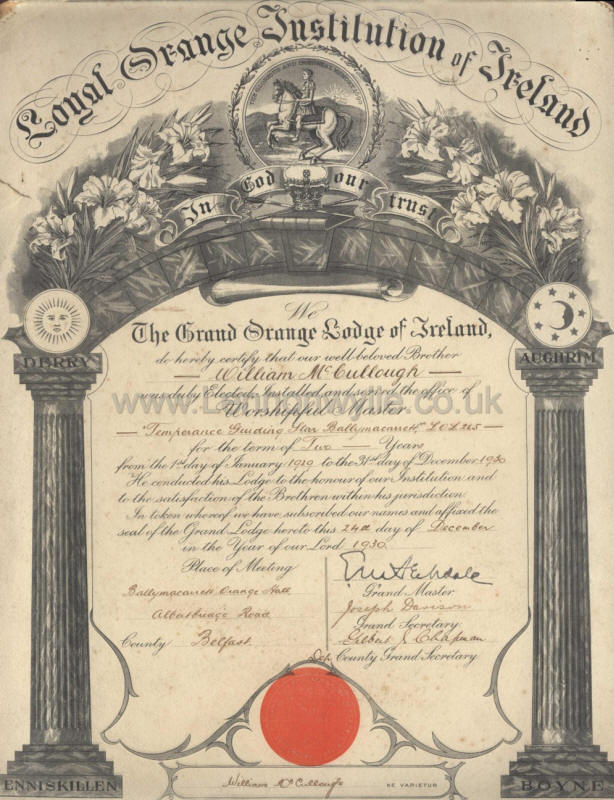 Loyal Orange Institution of Ireland
In God our trust
DERRY
AUGHRIM
We
The Grand Orange Lodge of Ireland,
do hereby certify that our well beloved Brother
William McCullough
was duly Elected, Installed and served the office of
Worshipful Master
"Temperance Guiding Star Ballymacarrett" LOL 265
for the term of Two Years
from the 1st day of January 1929 to the 31st day of December 1930
He conducted his Lodge to the honour of our Institution and
to the satisfaction of the Brethren within his jurisdiction
In token whereof we have subscribed our names and affixed the
seal of the Grand Lodge hereto this 24th day of December
in the Year of our Lord 1930.
Place of Meeting
Ballymacarrett Orange Hall
Albertbridge Road
County Belfast
Grand Master
Joseph Davison
Grand Secretary
Gilbert Chapman
Dep. County Grand Secretary
ENNISKILLEN
William McCullough
NE VARIETUR
BOYNE